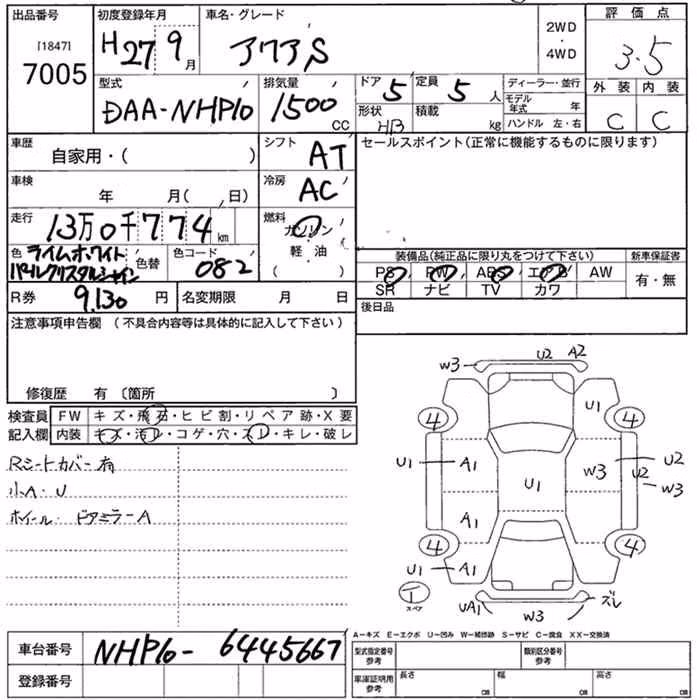 出品番号
[1847]
7005
初度登録年月
H 27 9 月
車名・グレード
アクア,S
2WD
・
4WD
評価点
3.5
型式
DAA-NHP10
排気量
1500 CC
ドア 5
定員 5 人
ディーラー・並行
形状 HB
積載 kg
モデル年式 年
ハンドル 左・右
外装 内装
C C
車歴
自家用・( )
シフト
AT
セールスポイント(正常に機能するものに限ります)
車検
年 月( , 日)
冷房
AC
走行
13万0千774 km
燃料
ガソリン
・
軽・油
( )
色 ライムホワイト
パールクリスタルシャイン
色替
色コード
082
装備品(純正品に限り丸をつけて下さい)
新車保証書
PS PW ABS エアB AW
SR ナビ TV カワ
有・無
R券 9,130 円
名変期限 月 日
後日品
注意事項申告欄 (不具合内容等は具体的に記入して下さい)
修復歴 有 〔箇所 〕
検査員
記入欄
FW キズ・飛石・ヒビ割・リペア跡・X要
内装 キズ・汚レ・コゲ・穴・スレ・キレ・破レ
Rシートカバー有
小A・U
ホイール・ドアミラーA
W3 U2 A2
U1
4 4
U1 A1 W3 U2 U2
U1 W3
A1
4 4
U1 A1
T
スペア
UA1 W3 ズレ
A−キズ E−エクボ U−凹み W−補修跡 S−サビ C−腐食 XX−交換済
車台番号 NHP10-6445667
登録番号
型式指定番号
参考
類別区分番号
参考
車庫証明用
参考
長さ cm
幅 cm
高さ cm